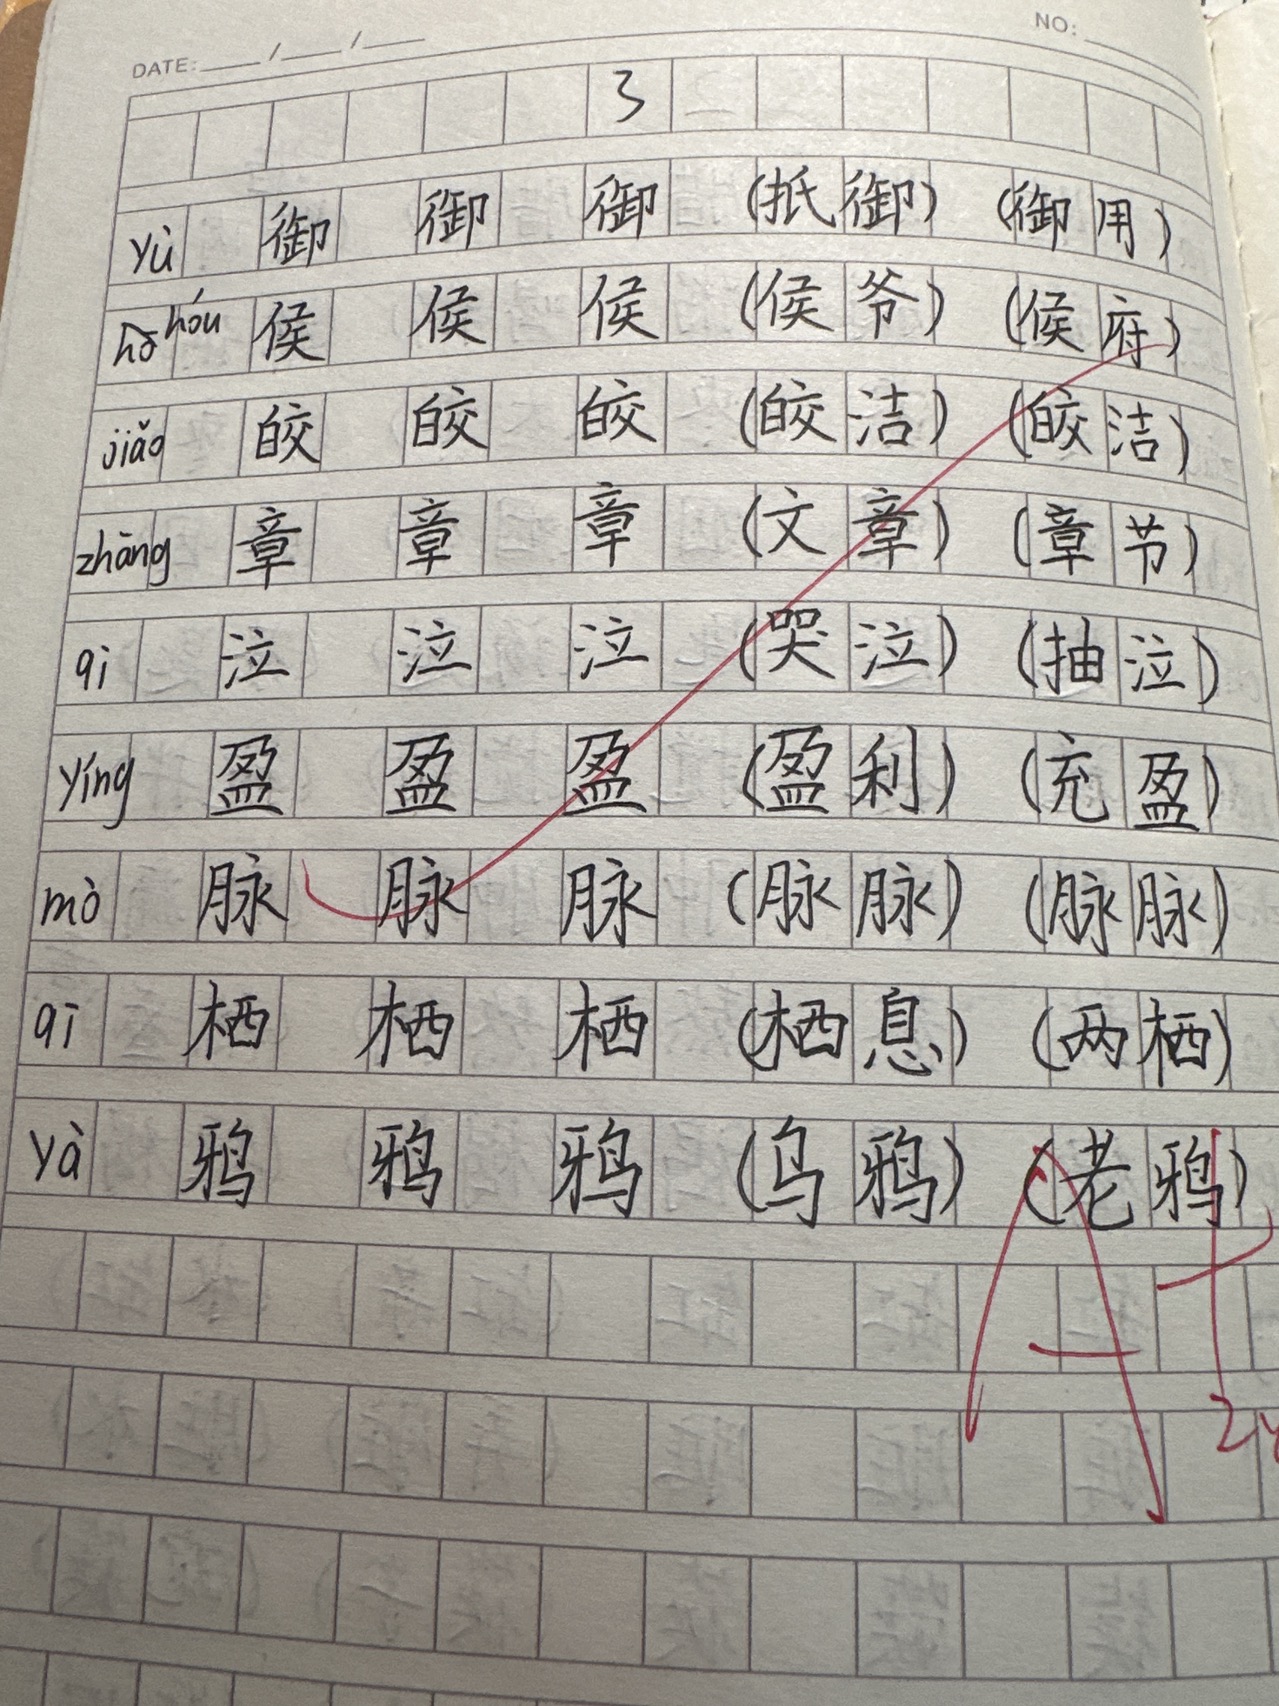 DATE: / / NO:
3
yù 御 御 御 (抵御) (御用)
hóu 侯 侯 侯 (侯爷) (侯府)
jiǎo 皎 皎 皎 (皎洁) (皎洁)
zhāng 章 章 章 (文章) (章节)
qì 泣 泣 泣 (哭泣) (抽泣)
yíng 盈 盈 盈 (盈利) (充盈)
mò 脉 脉 脉 (脉脉) (脉脉)
qī 栖 栖 栖 (栖息) (两栖)
yà 鸦 鸦 鸦 (乌鸦) (老鸦)
A+